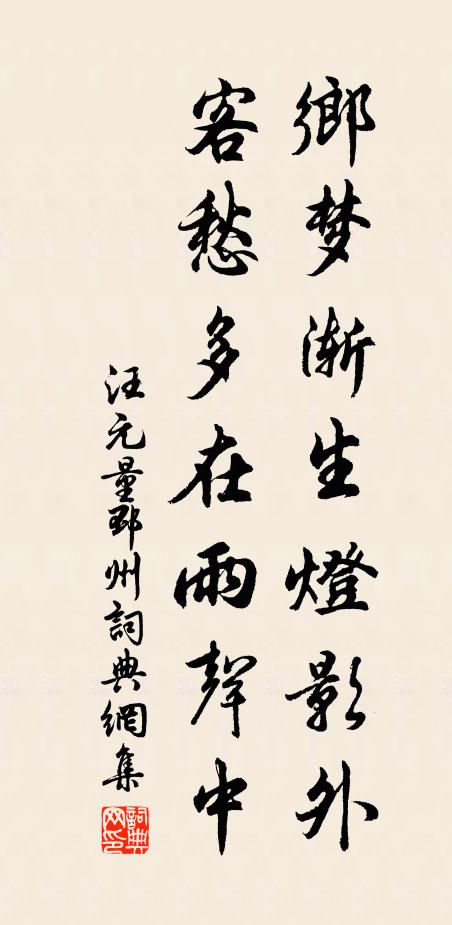 鄉梦漸生燈影外
客愁多在雨聲中
汪元量邳州詞典網集
詞典网印